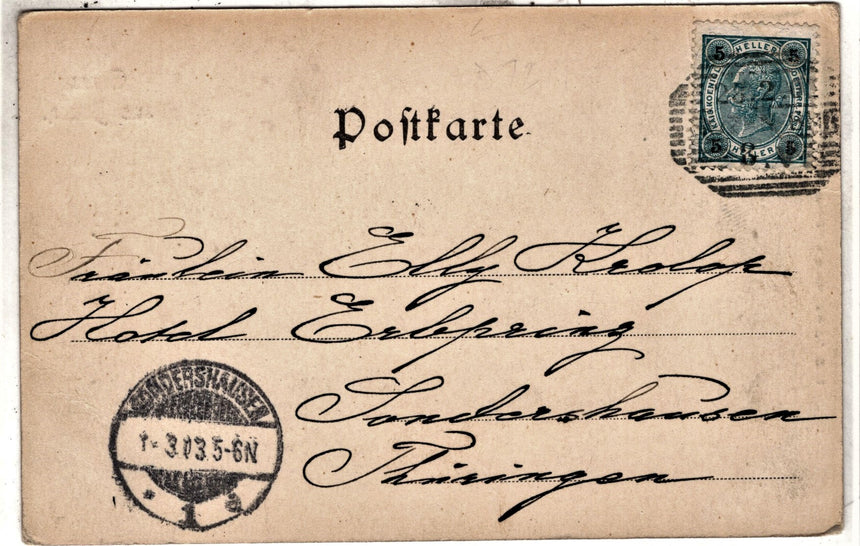 Postkarte
5 HELLER 5
5 HELLER 5
Fräulein Elly Krolop
Hotel Erbprinz
Sondershausen
Thüringen
SONDERSHAUSEN
1-3.03.5-6N
* 1 a